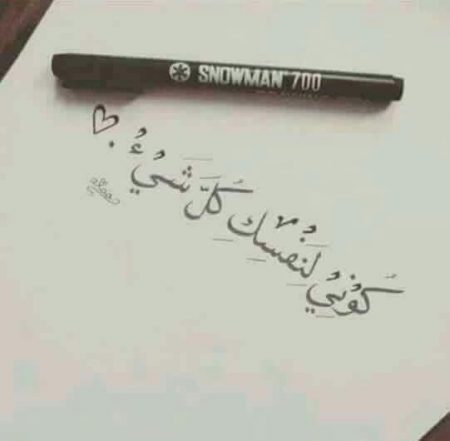 SNOWMAN 700
كُوْنِيْ لَنِفْسِكِ كُلَّ شَيْءُ